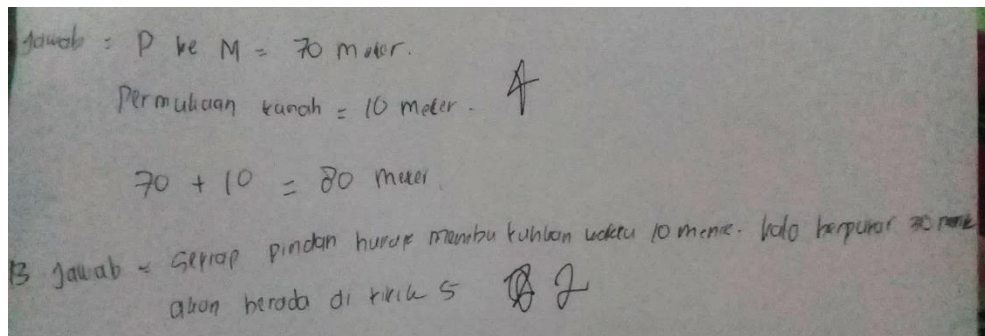 Jawab = P ke M = 70 meter.
Permukaan tanah = 10 meter. 4
70 + 10 = 80 meter
B Jawab = Setiap pindah huruf membutuhkan waktu 10 menit. kalo berputar 30
akan berada di titik S 2